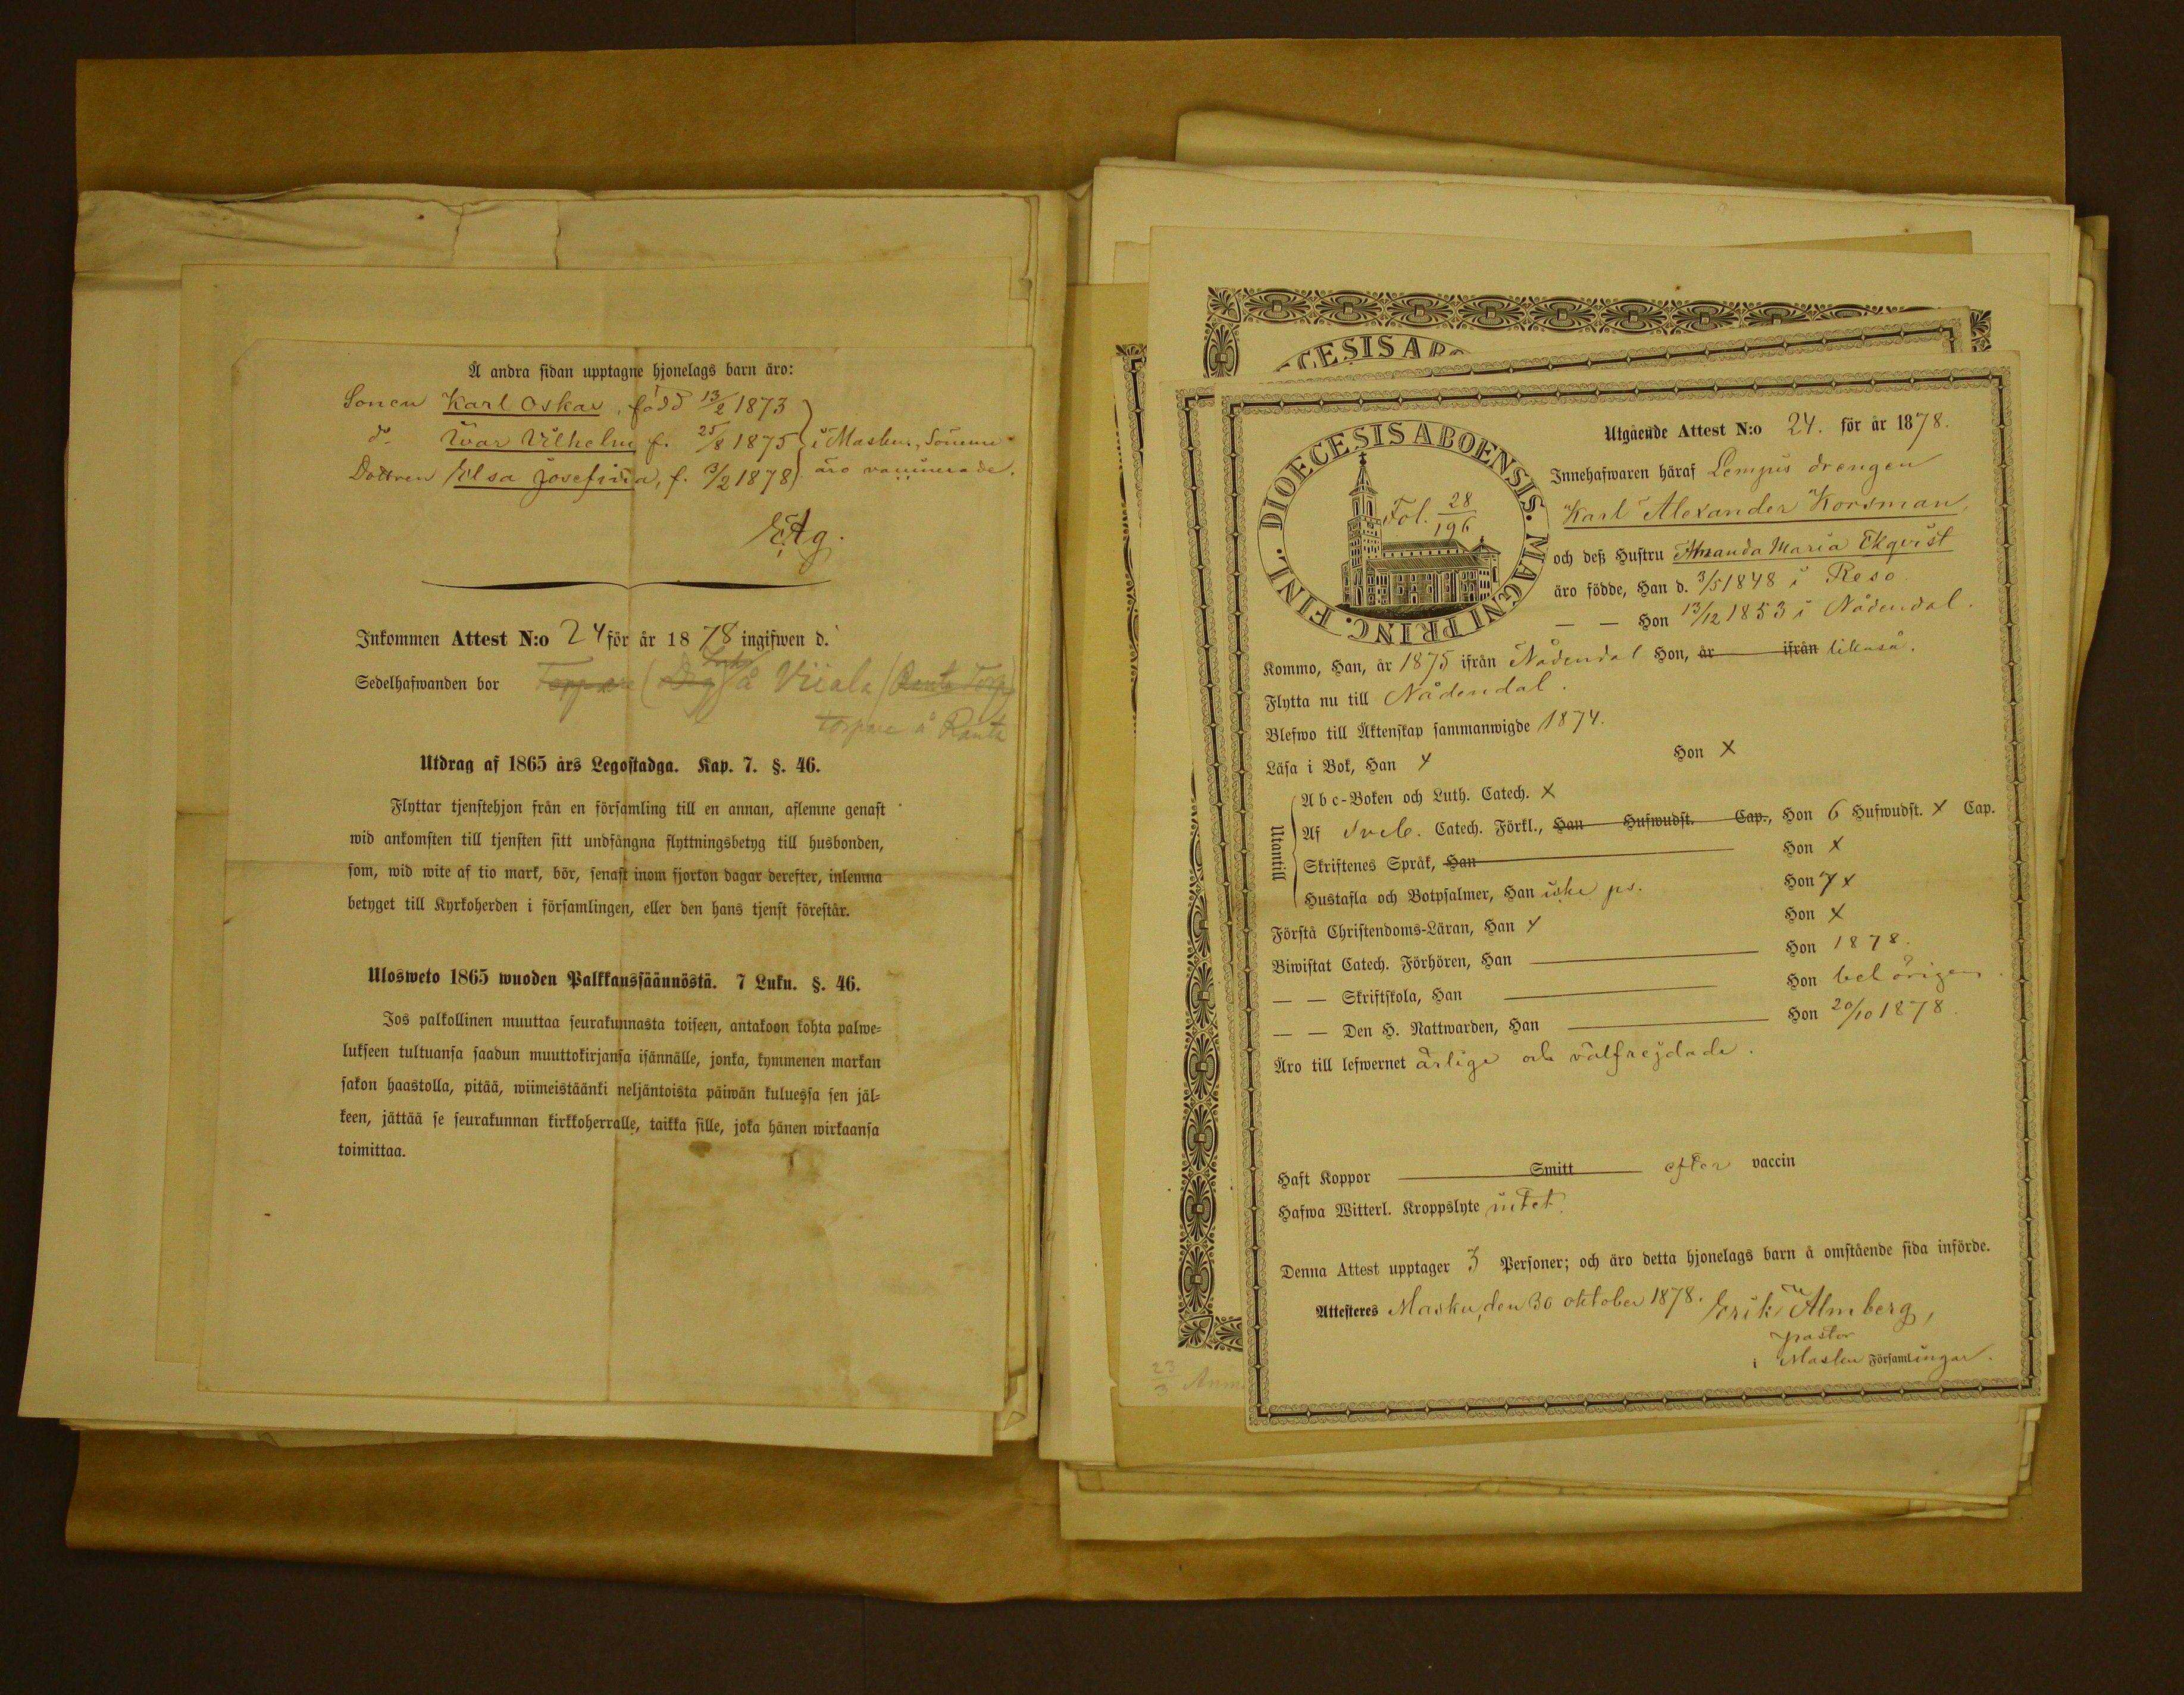 Å andra sidan upptagne hjonelags barn äro:
Sonen Karl Oskar, född 13/2 1873
d:o Ivar Vilhelm f. 25/8 1875 i Masku, Sönerne
Dottren Elsa Josefina, f. 3/2 1878 äro vaccinerade.
EAg.
Inkommen Attest N:o 24 för år 1878 ingifwen d.
Sedelhafwanden bor å Viiala (Ranta Torp)
torpare å Ranta
Utdrag af 1865 års Legostadga. Kap. 7. §. 46.
Flyttar tjenstehjon från en församling till en annan, aflemne genast
wid ankomsten till tjensten sitt undfångna flyttningsbetyg till husbonden,
som, wid wite af tio mark, bör, senast inom fjorton dagar derefter, inlemna
betyget till Kyrkoherden i församlingen, eller den hans tjenst förestår.
Ulosweto 1865 wuoden Palkkaussäännöstä. 7 Luku. §. 46.
Jos palkollinen muuttaa seurakunnasta toiseen, antakoon kohta palwe=
lukseen tultuansa saadun muuttokirjansa isännälle, jonka, kymmenen markan
sakon haastolla, pitää, wiimeistäänki neljäntoista päiwän kuluessa sen jäl=
keen, jättää se seurakunnan kirkkoherralle, taikka sille, joka hänen wirkaansa
toimittaa.
DIOECESIS ABOENSIS. MAGNI PRINC. FINL.
Fol. 28/196
Utgående Attest N:o 24. för år 1878.
Innehafwaren häraf Lempis drengen
Karl Alexander Korsman,
och deß Hustru Amanda Maria Ekqvist
äro födde, Han d. 3/5 1848 i Reso.
— — Hon 13/12 1853 i Nådendal.
Kommo, Han, år 1875 ifrån Nådendal Hon, år ifrån likaså.
Flytta nu till Nådendal.
Blefwo till Äktenskap sammanwigde 1874.
Läsa i Bok, Han X Hon X
Utantill
Abc-Boken och Luth. Catech. X
Af Sveb. Catech. Förkl., Han Hufwudst. Cap., Hon 6 Hufwudst. X Cap.
Skriftenes Språk, Han Hon X
Hustafla och Botpsalmer, Han icke ps. Hon 7 X
Förstå Christendoms-Läran, Han X Hon X
Biwistat Catech. Förhören, Han — Hon 1878.
— — Skriftskola, Han — Hon behörigen.
— — Den H. Nattwarden, Han — Hon 20/10 1878.
Äro till lefwernet ärlige och välfrejdade.
Haft Koppor Smitt efter vaccin
Hafwa Witterl. Kroppslyte intet.
Denna Attest upptager 3 Personer; och äro detta hjonelags barn å omstående sida införde.
Attesteres Masku, den 30 oktober 1878. Erik Almberg,
pastor
i Masku Församlingar.
23/3 Anm.
CESIS ABO